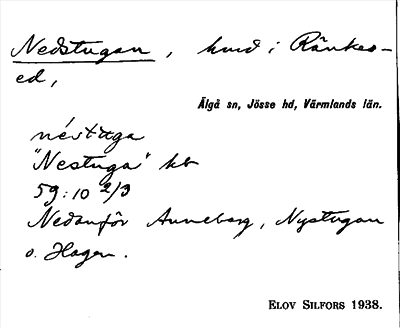 Nedstugan, hmd i Rånkes-
ed,
Älgå sn, Jösse hd, Värmlands län.
néstuga
"Nestuga" kb
59:10 2/3
Nedanför Anneberg, Nystugan
o. Hagen.
ELOV SILFORS 1938.